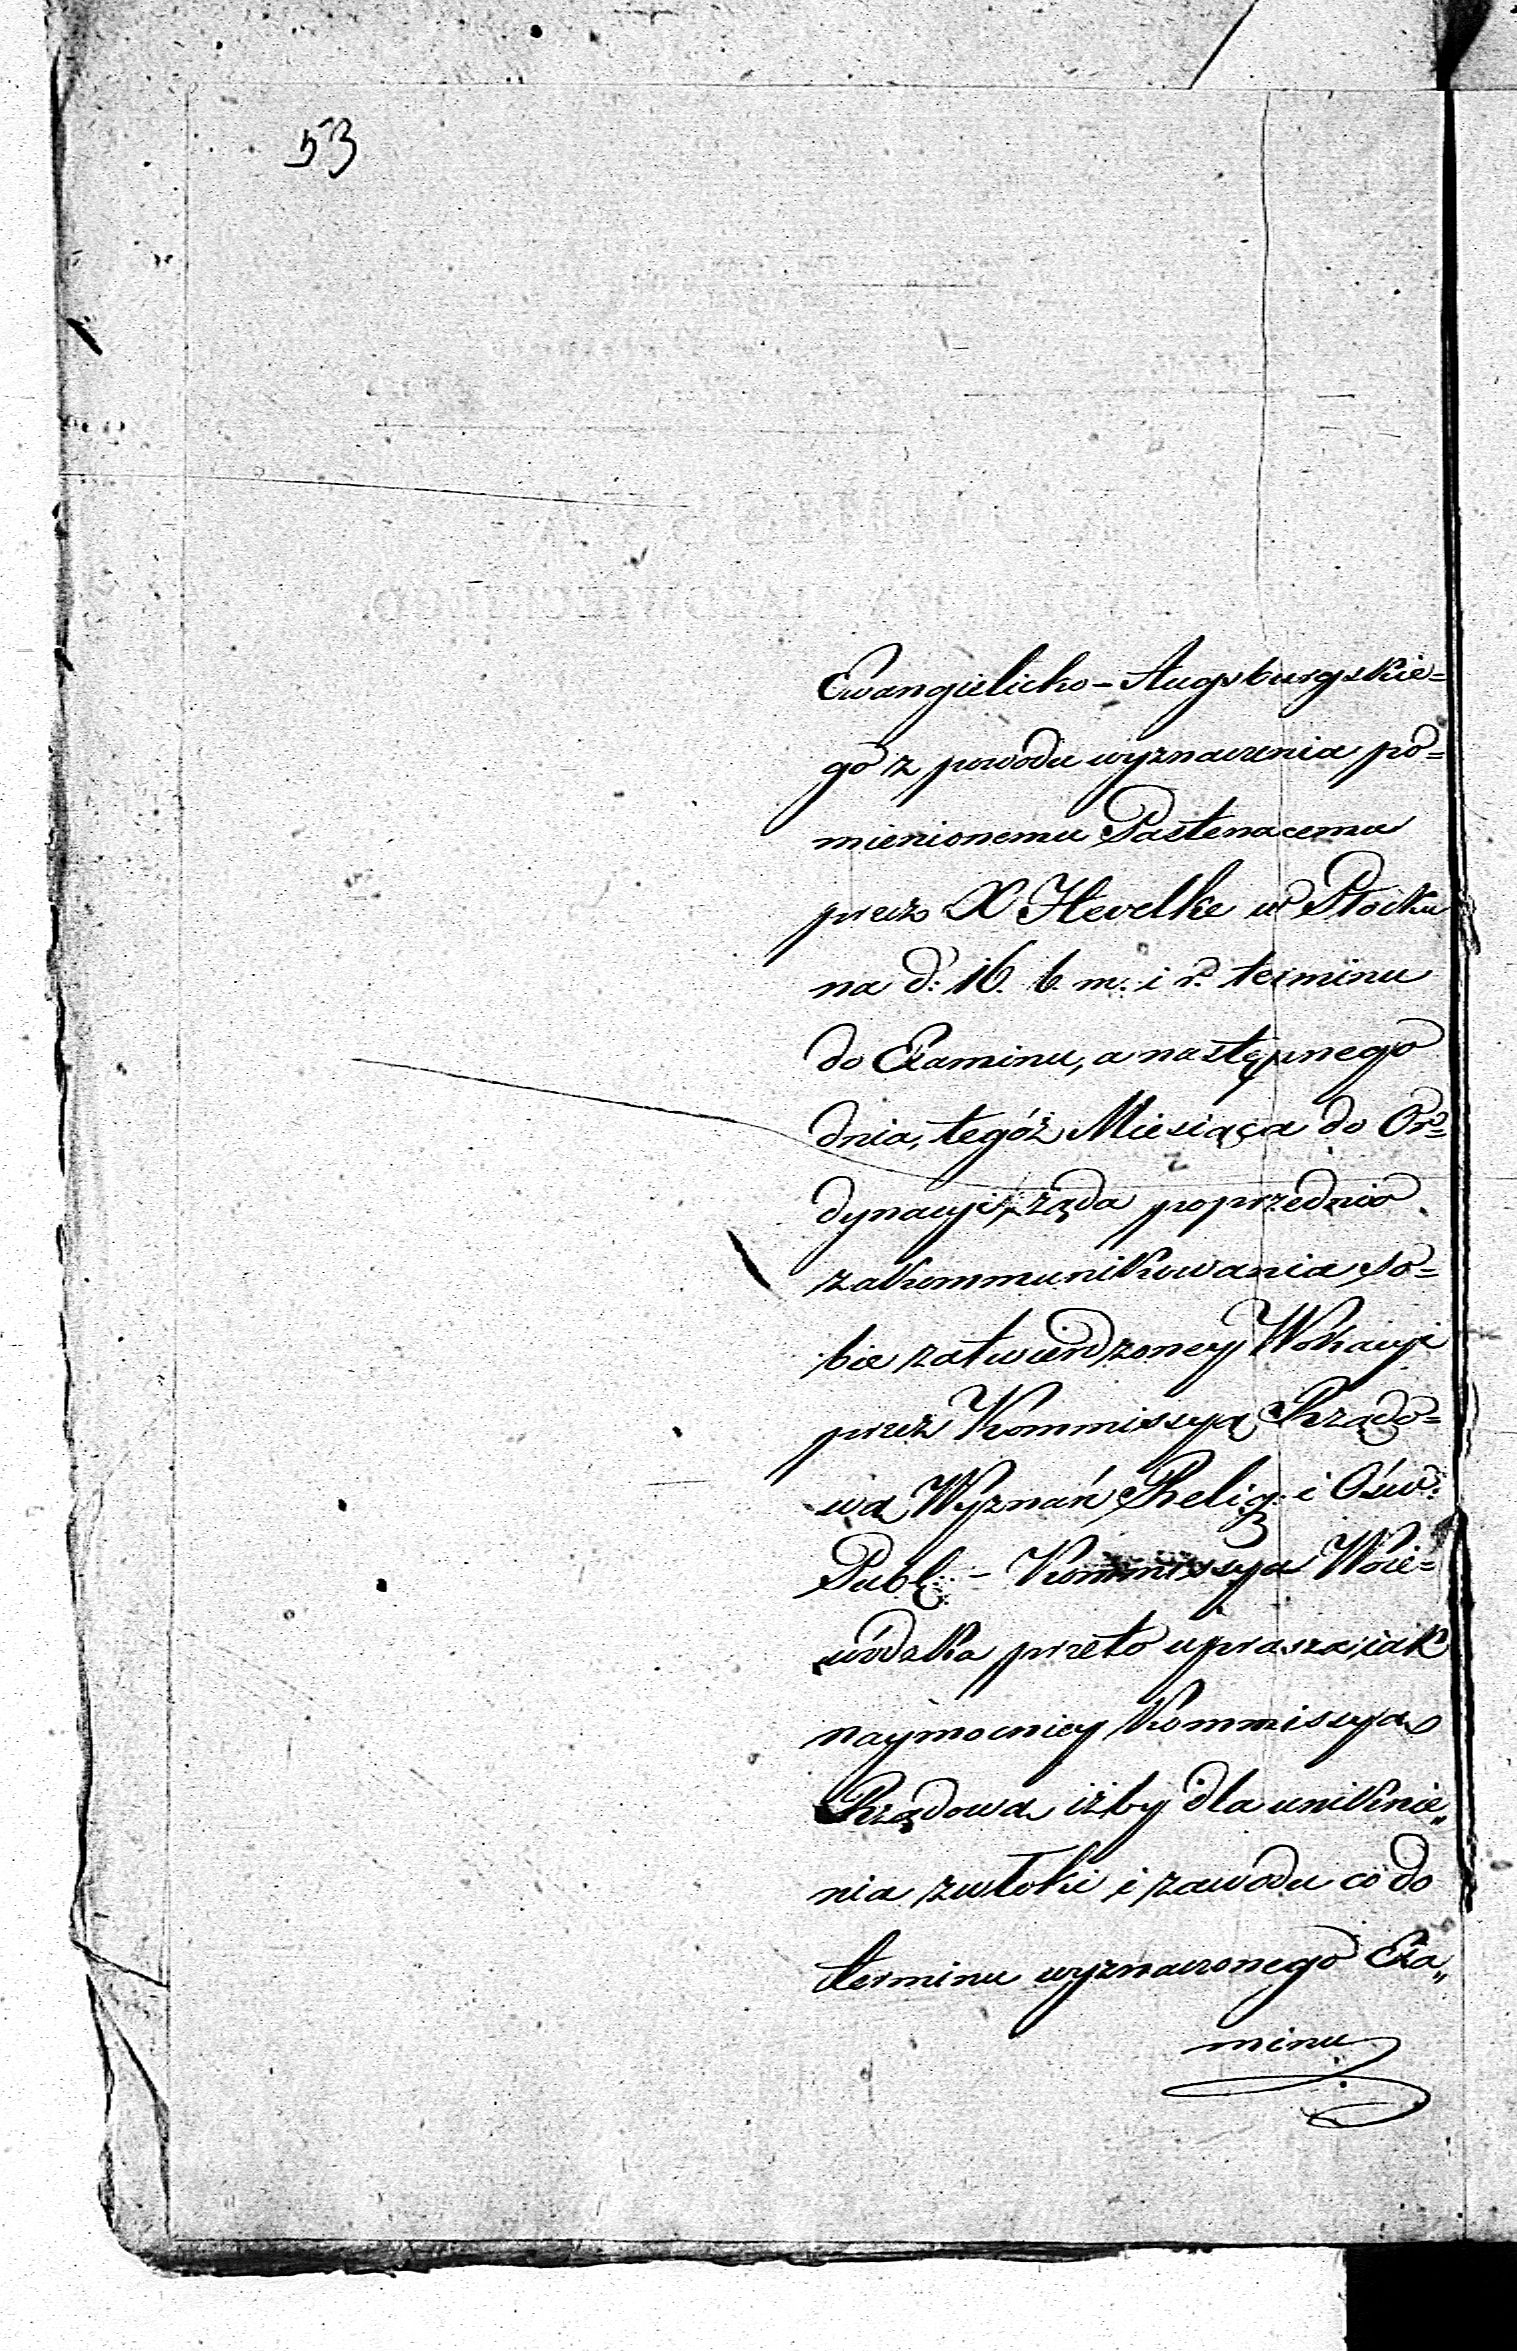 53
Ewangielicko-Augsburgskie=
go z powodu wyznaczenia po=
mienionemu Pastenacemu
przez X Hevelke w Płocku
na d: 16. b. m. i r. terminu
do Examinu, a następnego
dnia, tegóż Miesiąca do Or=
dynacyi, żąda poprzednio
zakommunikowania so=
bie zatwierdzoney Wokacyi
przez Kommissyą Rządo=
wą Wyznań Relig: i Ośw:
Publ: - Kommissya Woie=
wódzka przeto uprasza iak
naymocniey Kommissyą
Rządową iżby dla uniknie„
nia zwłoki i zawodu co do
terminu wyznaczonego Exa„
minu